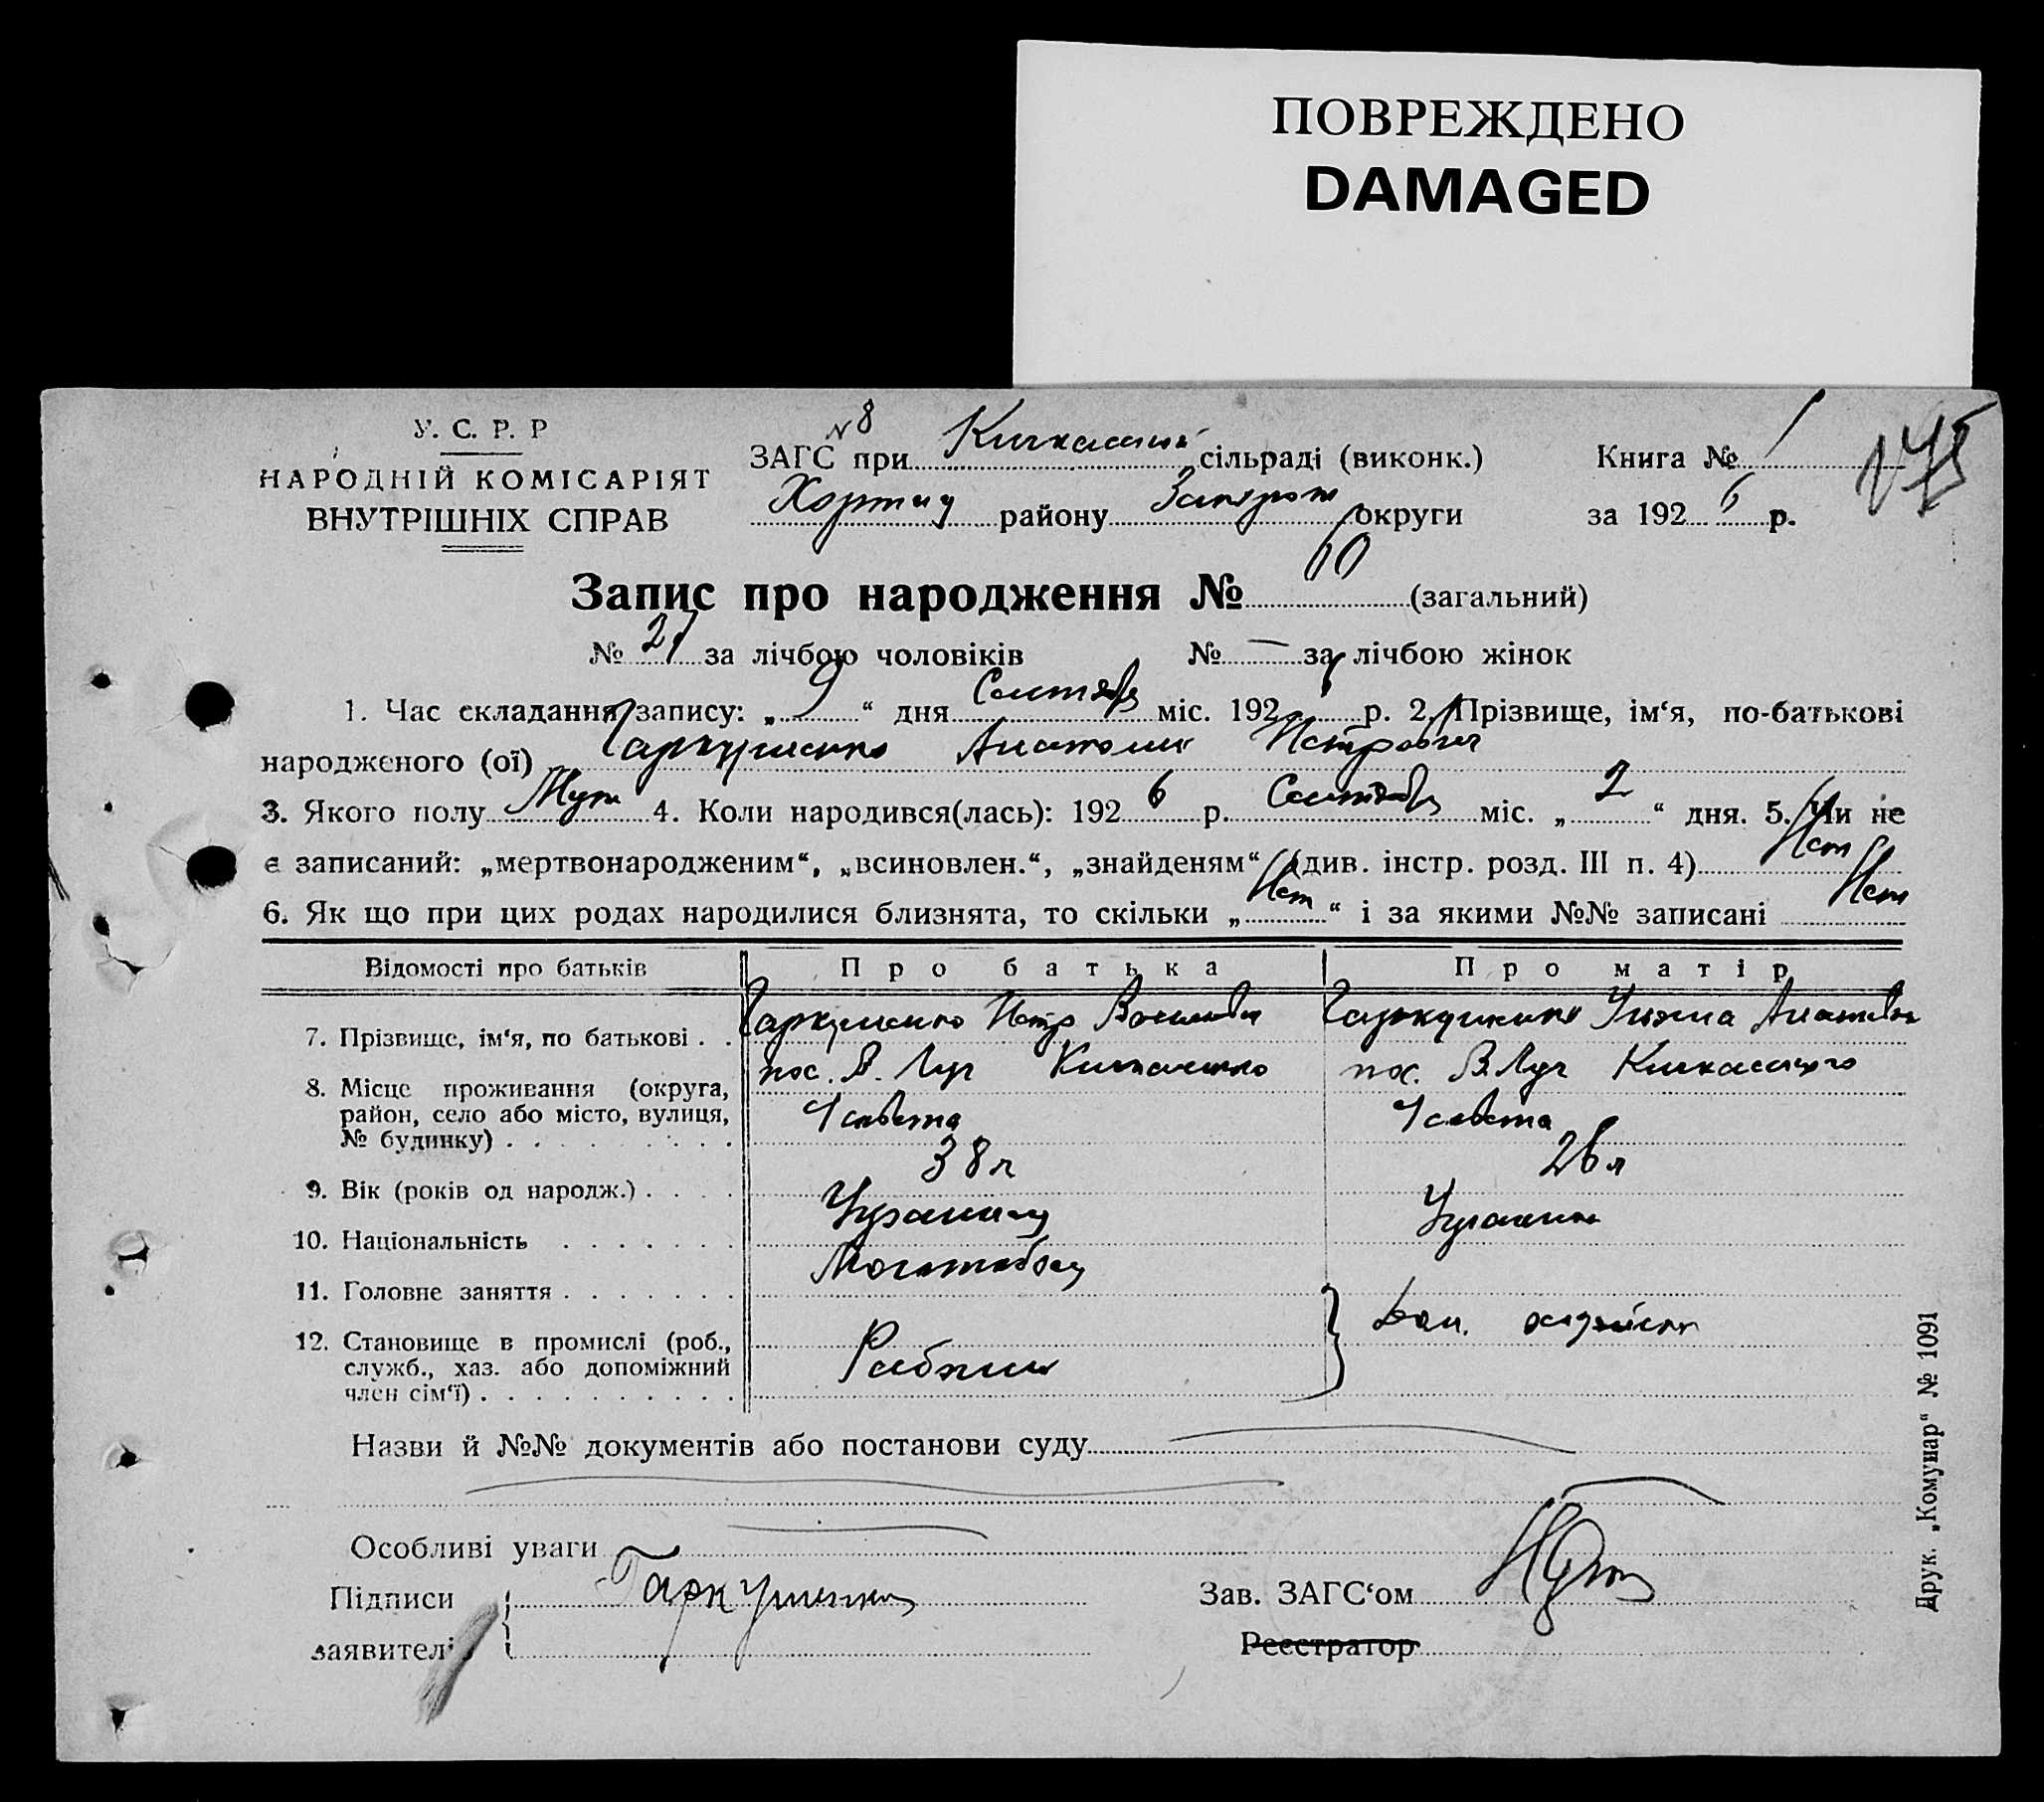 ПОВРЕЖДЕНО
DAMAGED
У. С. Р. Р
НАРОДНІЙ КОМІСАРІЯТ
ВНУТРІШНІХ СПРАВ
№ 8
ЗАГС при Кичкасский сільраді (виконк.)
Книга № 1
175
Хортиц району Запорож округи
за 1926 р.
Запис про народження № 60 (загальний)
№ 27 за лічбою чоловіків № — за лічбою жінок
1. Час складання запису: „ 9 “ дня Сентября міс. 192 6 р. 2. Прізвище, ім‘я, по-батькові
народженого (ої) Гаркушенко Анатолий Петрович
3. Якого полу Муж 4. Коли народився(лась): 192 6 р. Сентября міс. „ 2 “ дня. 5. Чи не
є записаний: „мертвонародженим“, „всиновлен.“, „знайденям“ (див. інстр. розд. III п. 4) Нет
6. Як що при цих родах народилися близнята, то скільки „ Нет “ і за якими №№ записані Нет
Відомості про батьків Про батька Про матір
7. Прізвище, ім‘я, по батькові . . Гаркушенко Петр Гаркушенко
8. Місце проживання (округа, район, село або місто, вулиця, № будинку) . . . пос. В. Луч Кичкасского с/совета пос. В. Луч Кичкасского с/совета
9. Вік (років од народж.) . . . . 38 л 26 л
10. Національність . . . . . . . Украинец Украинка
11. Головне заняття . . . . . . .
12. Становище в промислі (роб., служб., хаз. або допоміжний член сім‘ї) . . . Рабочий Дом. хозяйка
Назви й №№ документів або постанови суду
Особливі уваги
Підписи заявителі Гаркушенко
Зав. ЗАГС‘ом
Реєстратор
Друк. „Комунар“ № 1091